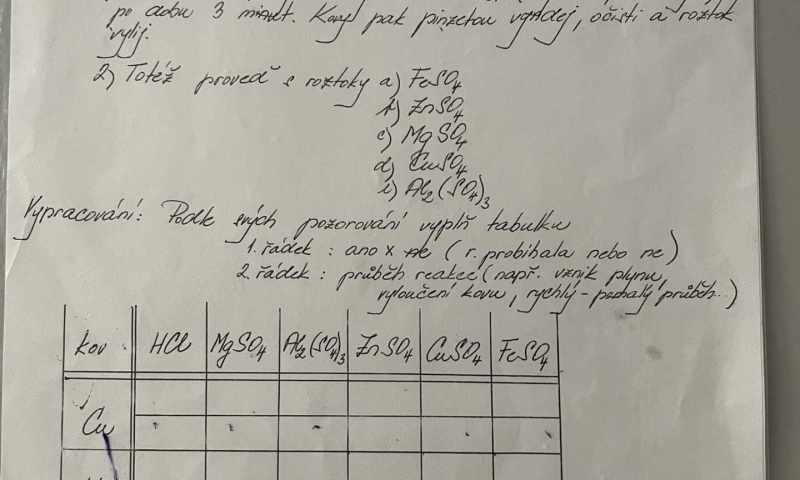 po dobu 3 minut. Kovy pak pinzetou vyndej, očisti a roztok
vylij.
2) Totéž proveď s roztoky a) FeSO4
b) ZnSO4
c) MgSO4
d) CuSO4
e) Al2(SO4)3
Vypracování: Podle svých pozorování vyplň tabulku
1. řádek : ano x ne (r. probíhala nebo ne)
2. řádek : průběh reakcí (např. vznik plynu,
vyloučení kovu, rychlý - pomalý průběh...)
kov HCl MgSO4 Al2(SO4)3 ZnSO4 CuSO4 FeSO4
Cu